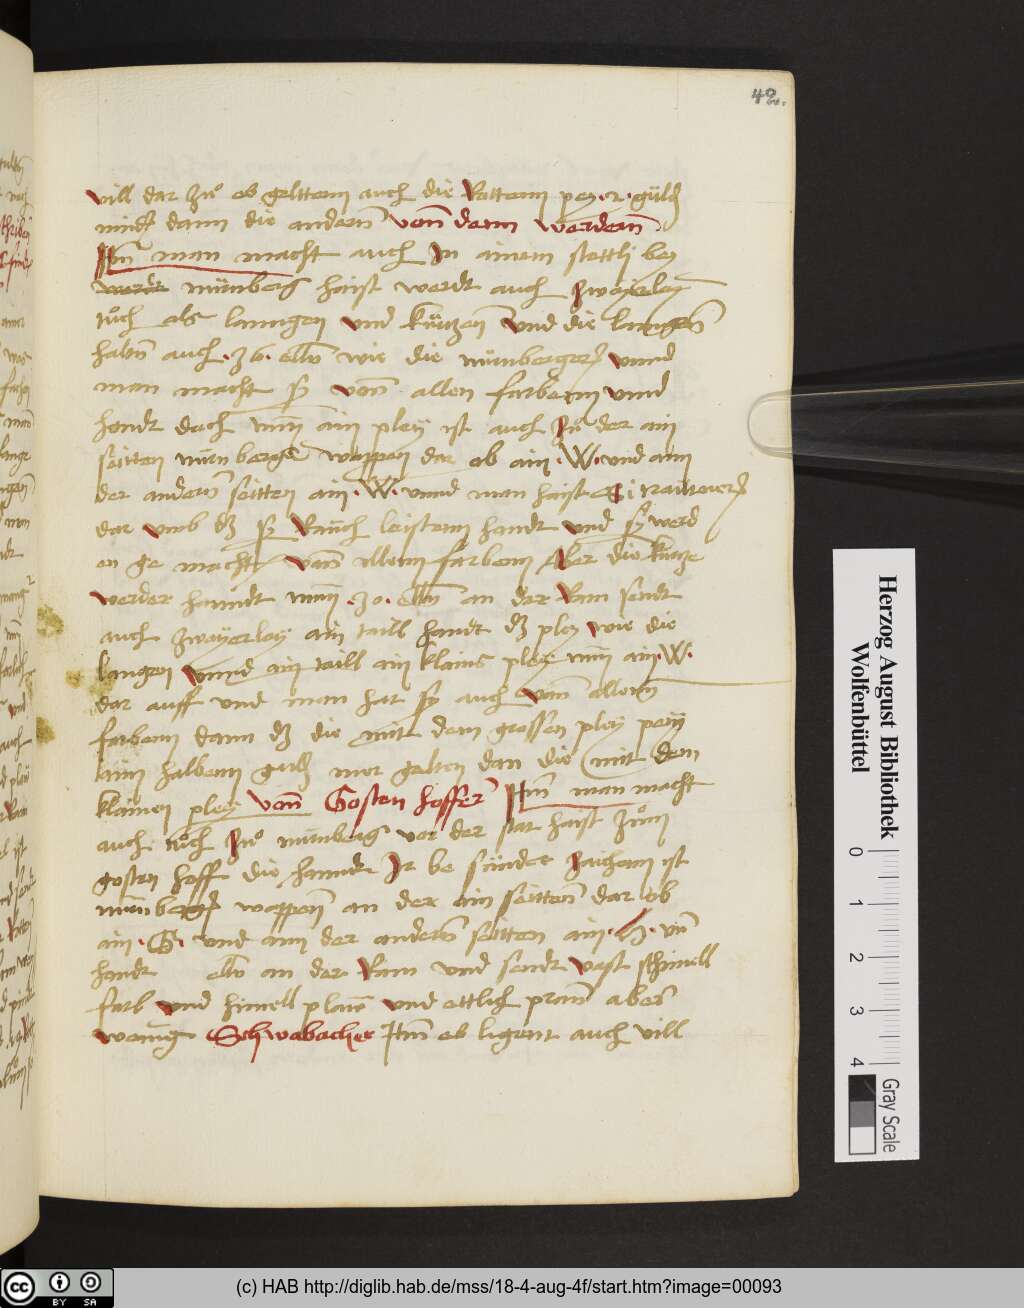 49
vill dar zuo es geltten auch die Rotten pey .2. guld
minder dann die andern vonn denn werdern
Itm man macht auch In ainem stettli bey
werdt nürnberg haist werdt auch zwayerley
tuch als lanngen und kurtzen Und die langen
habn auch .36. elln wie die nürnberger vnnd
man macht sy vonn allen farbenn vnnd
hendt doch nun ain pley ist auch zu der ain
seitten nürnberger wappen dar ob ain .W. und ann
der andern seitten ain .W. vnnd man haist
dar vmb dz sy Rauch leistenn handt und sy werd
en ge macht vonn allenn farbenn Aber die kurtze
werder hanndt nun .30. elln an der Ram sendt
auch zwayerley ain taill handt dz pley wie die
langen vnnd ain taill ain klains pley nun ain .W.
dar auff vnd man hat sy auch vonn allenn
farbenn dann dz die mit dem grossen pley peny
ainn halbenn guld mer gelten dan die mit dem
klainen pley vonn Gosten hoffer Itm man macht
auch tuch zuo nürnberg vor der stat haist zum
gosten hoff die hanndt Ir be sunder zaichenn ist
nürnberger wappen an der ain seittenn dar ob
ain .G. und ann der andern seitten ain .H. vnn
handt elln an der Ram und sendt vast schmell
farb vnd himell plaw und ettlich pran aber
wenig Schwabacher Itm es ligent auch vill
Herzog August Bibliothek
Wolfenbüttel
0 1 2 3 4
Gray Scale
cc BY SA
(c) HAB http://diglib.hab.de/mss/18-4-aug-4f/start.htm?image=00093